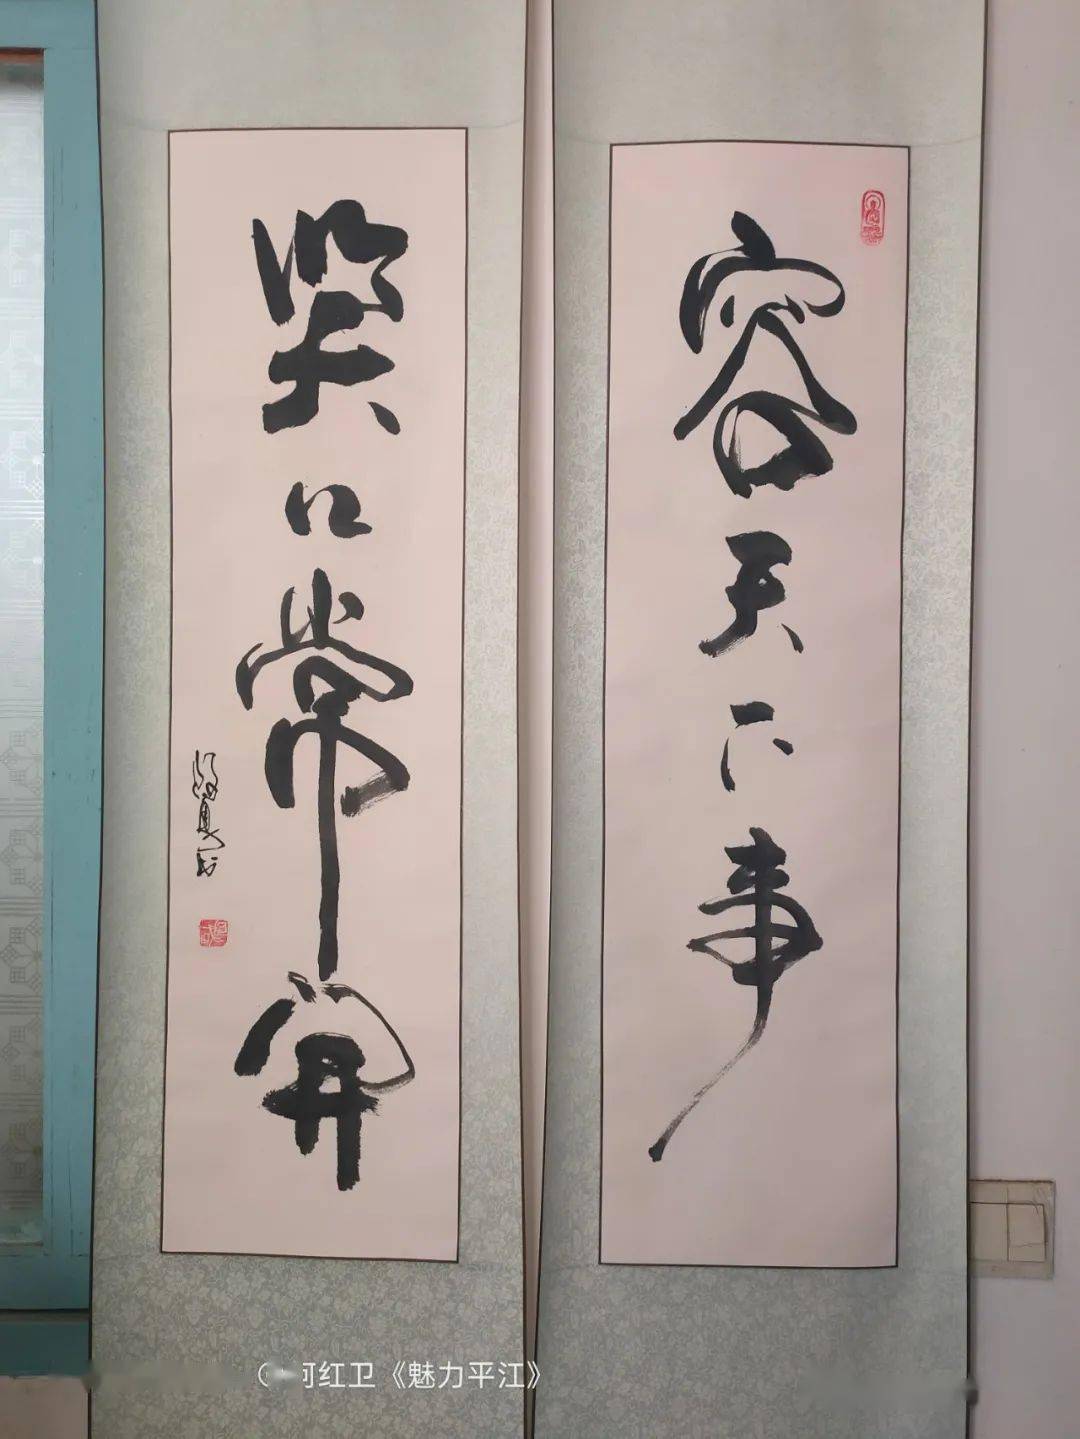 容天下事
笑口常開
何红卫《魅力平江》